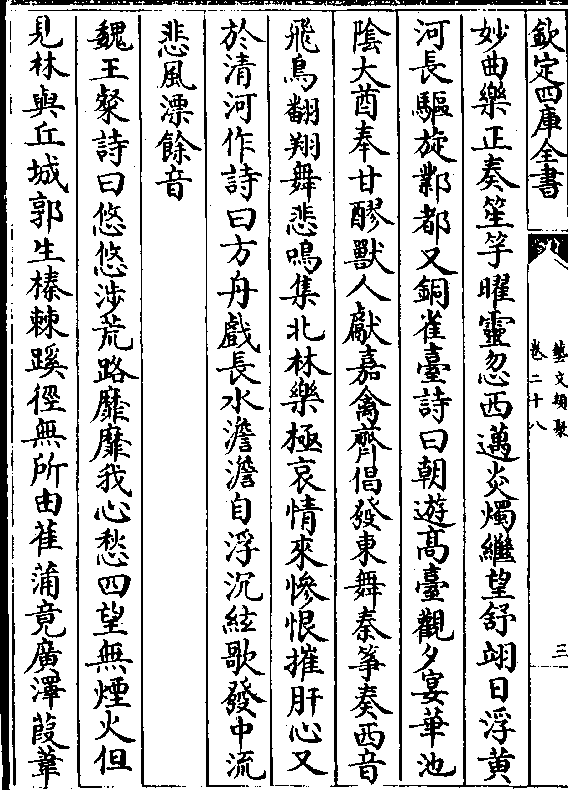 欽定四庫全書
藝文類聚
卷二十八
三
妙曲樂正奏笙竽曜靈忽西邁炎燭繼望舒翊日浮黄
河長驅旋鄴都又銅雀臺詩曰朝遊髙臺觀夕宴華池
陰大酋奉甘醪獸人獻嘉禽齊倡發東舞秦箏奏西音
飛鳥翻翔舞悲鳴集北林樂極哀情來慘恨摧肝心又
於清河作詩曰方舟戲長水澹澹自浮沉絃歌發中流
悲風漂餘音
魏王粲詩曰悠悠涉荒路靡靡我心愁四望無煙火但
見林與丘城郭生榛棘蹊徑無所由萑蒲竟廣澤葭葦